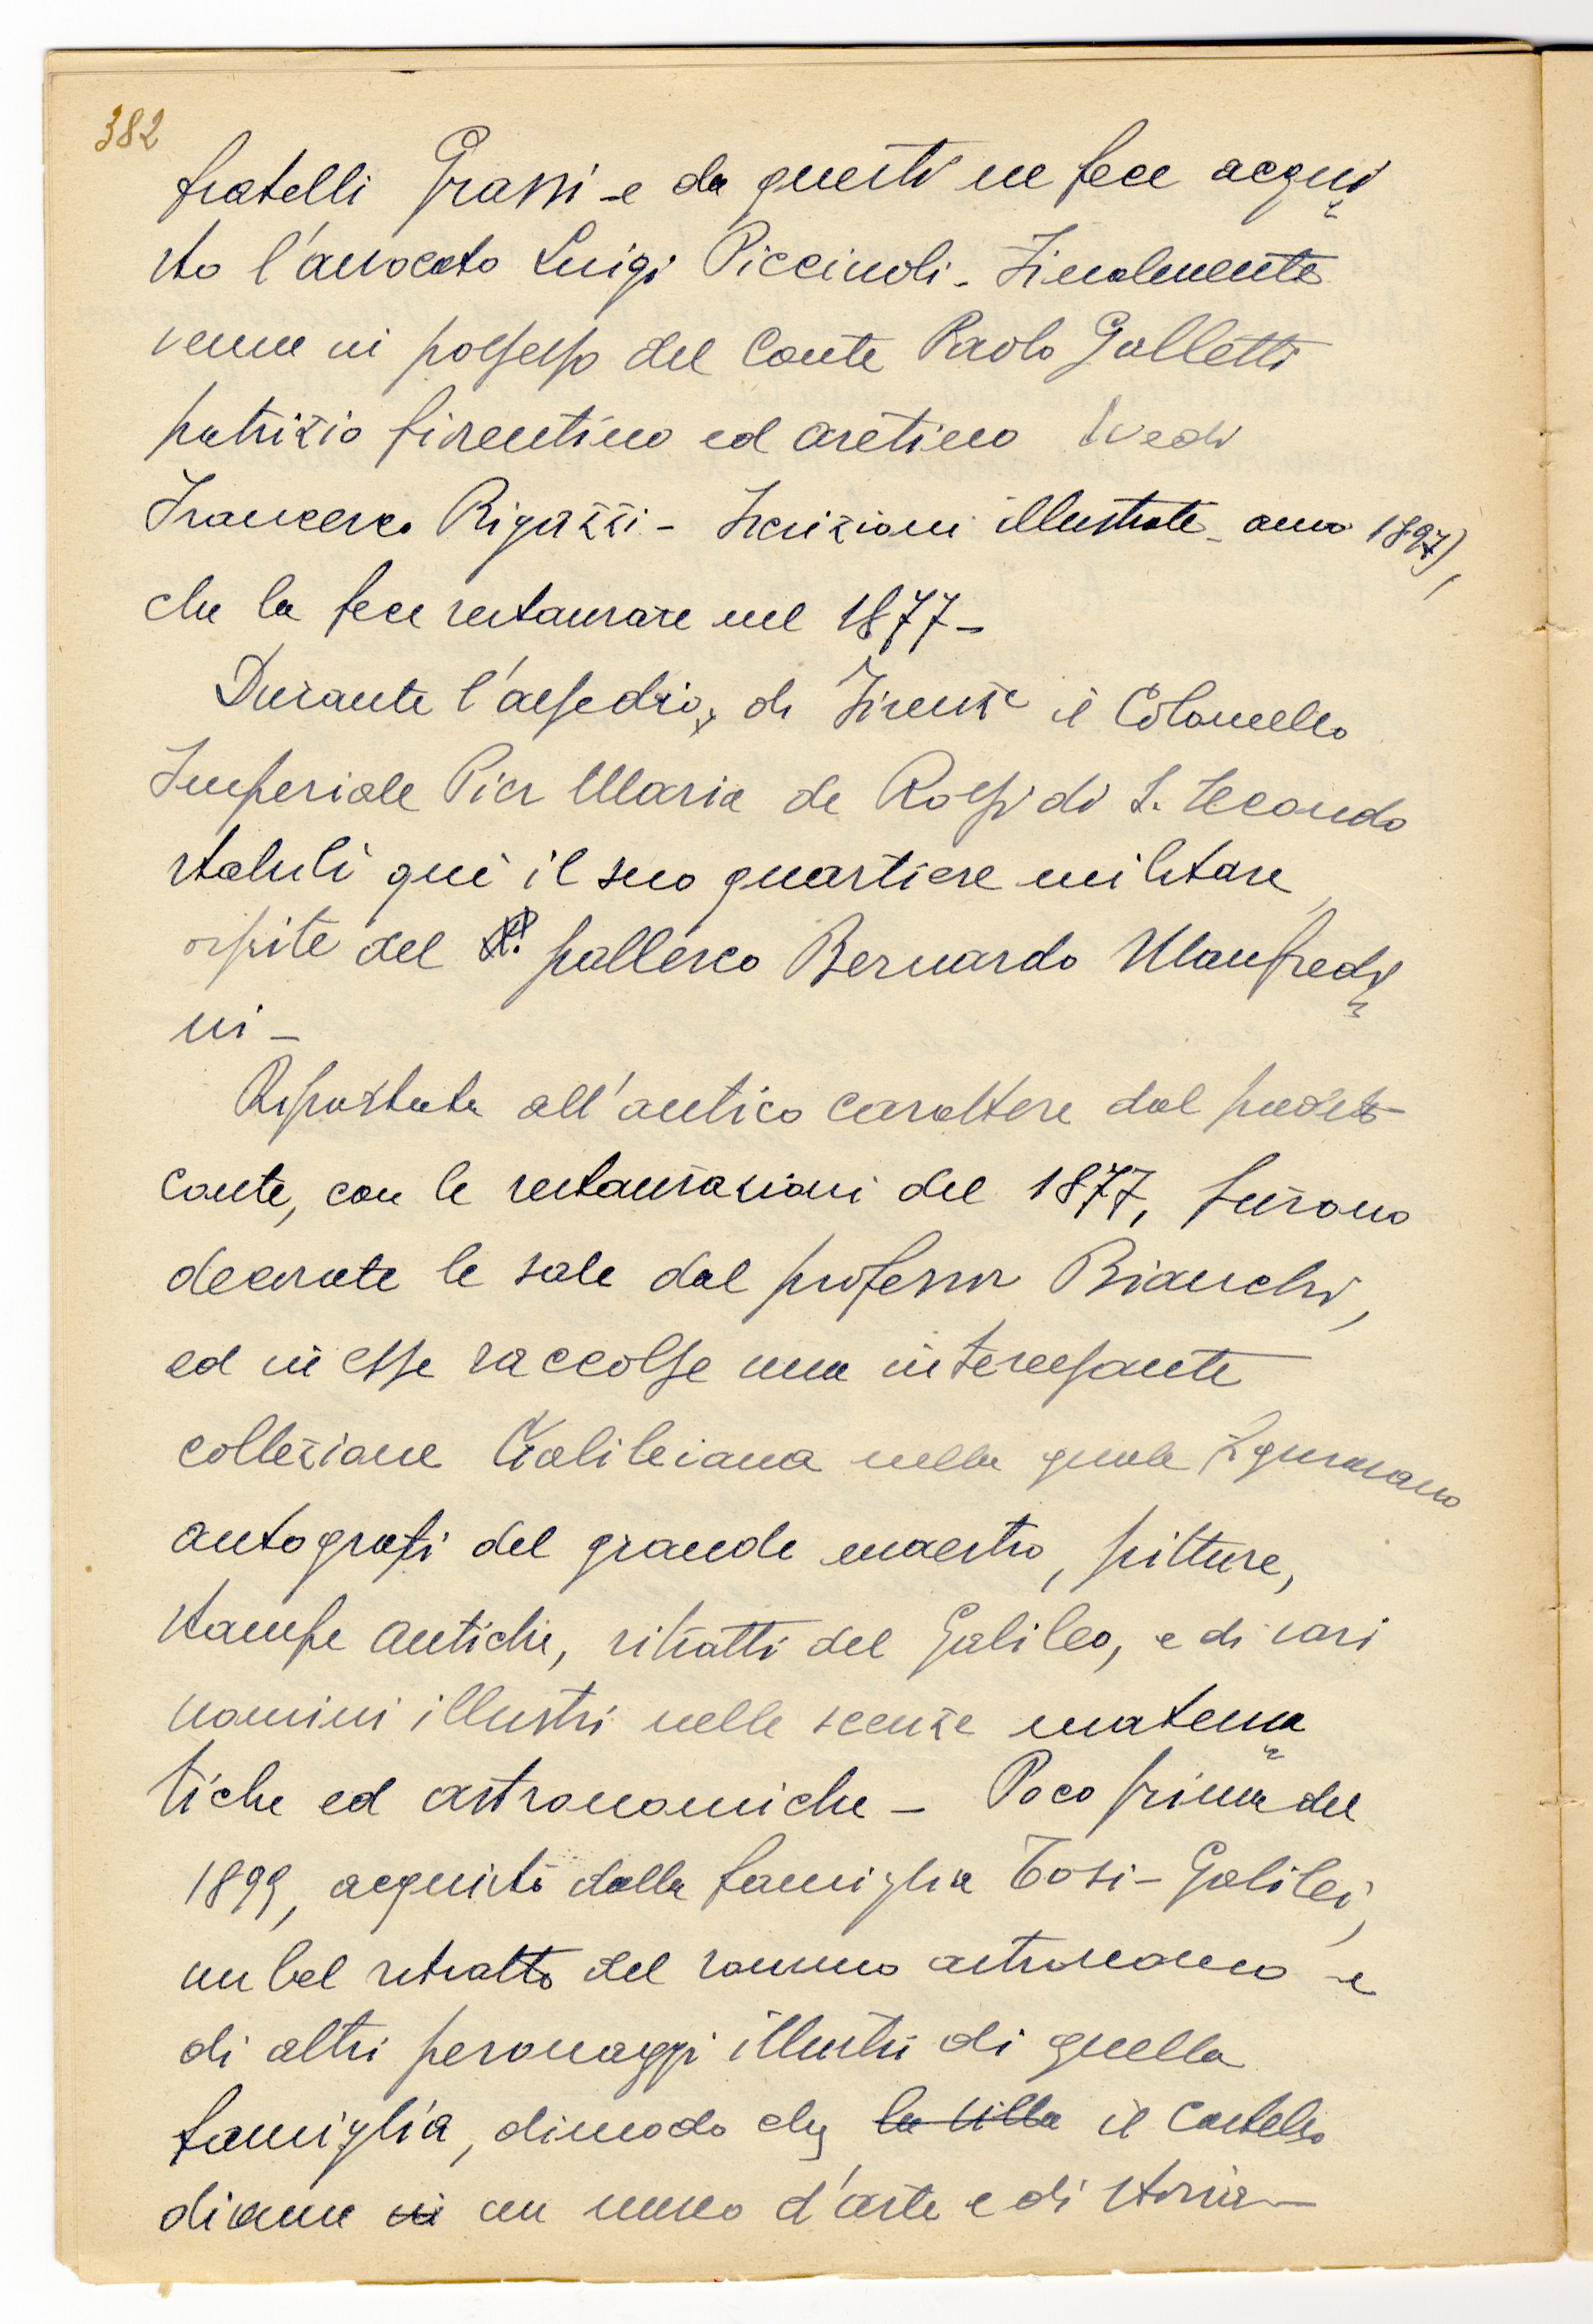 382
fratelli Grassi - e da questi ne fece acqui
sto l'avvocato Luigi Piccinoli - Finalmente
venne in possesso del Conte Paolo Galletti
patrizio fiorentino ed aretino (vedi
Francesco Rigazzi - Iscrizioni illustrate - anno 1897),
che la fece restaurare nel 1877 -
Durante l'assedio, di Firenze il Colonnello
Imperiale Pier Maria de Rossi di S. Secondo
stabilì quì il suo quartiere militare,
ospite del pallesco Bernardo Manfredi
ni -
Riportata all'antico carattere dal predetto
conte, con le restaurazioni del 1877, furono
decorate le sale dal professor Bianchi,
ed in esse raccolse una interessante
collezione Galileiana nella quale figuravano
autografi del grande maestro, pitture,
stampe antiche, ritratti del Galileo, e di vari
uomini illustri nelle scenze matema
tiche ed astronomiche - Poco prima del
1899, acquistò dalla famiglia Tosi - Galilei,
un bel ritratto del sommo astronomo e
di altri personaggi illustri di quella
famiglia, dimodo che la villa il Castello
divenne in un museo d'arte e di storia -